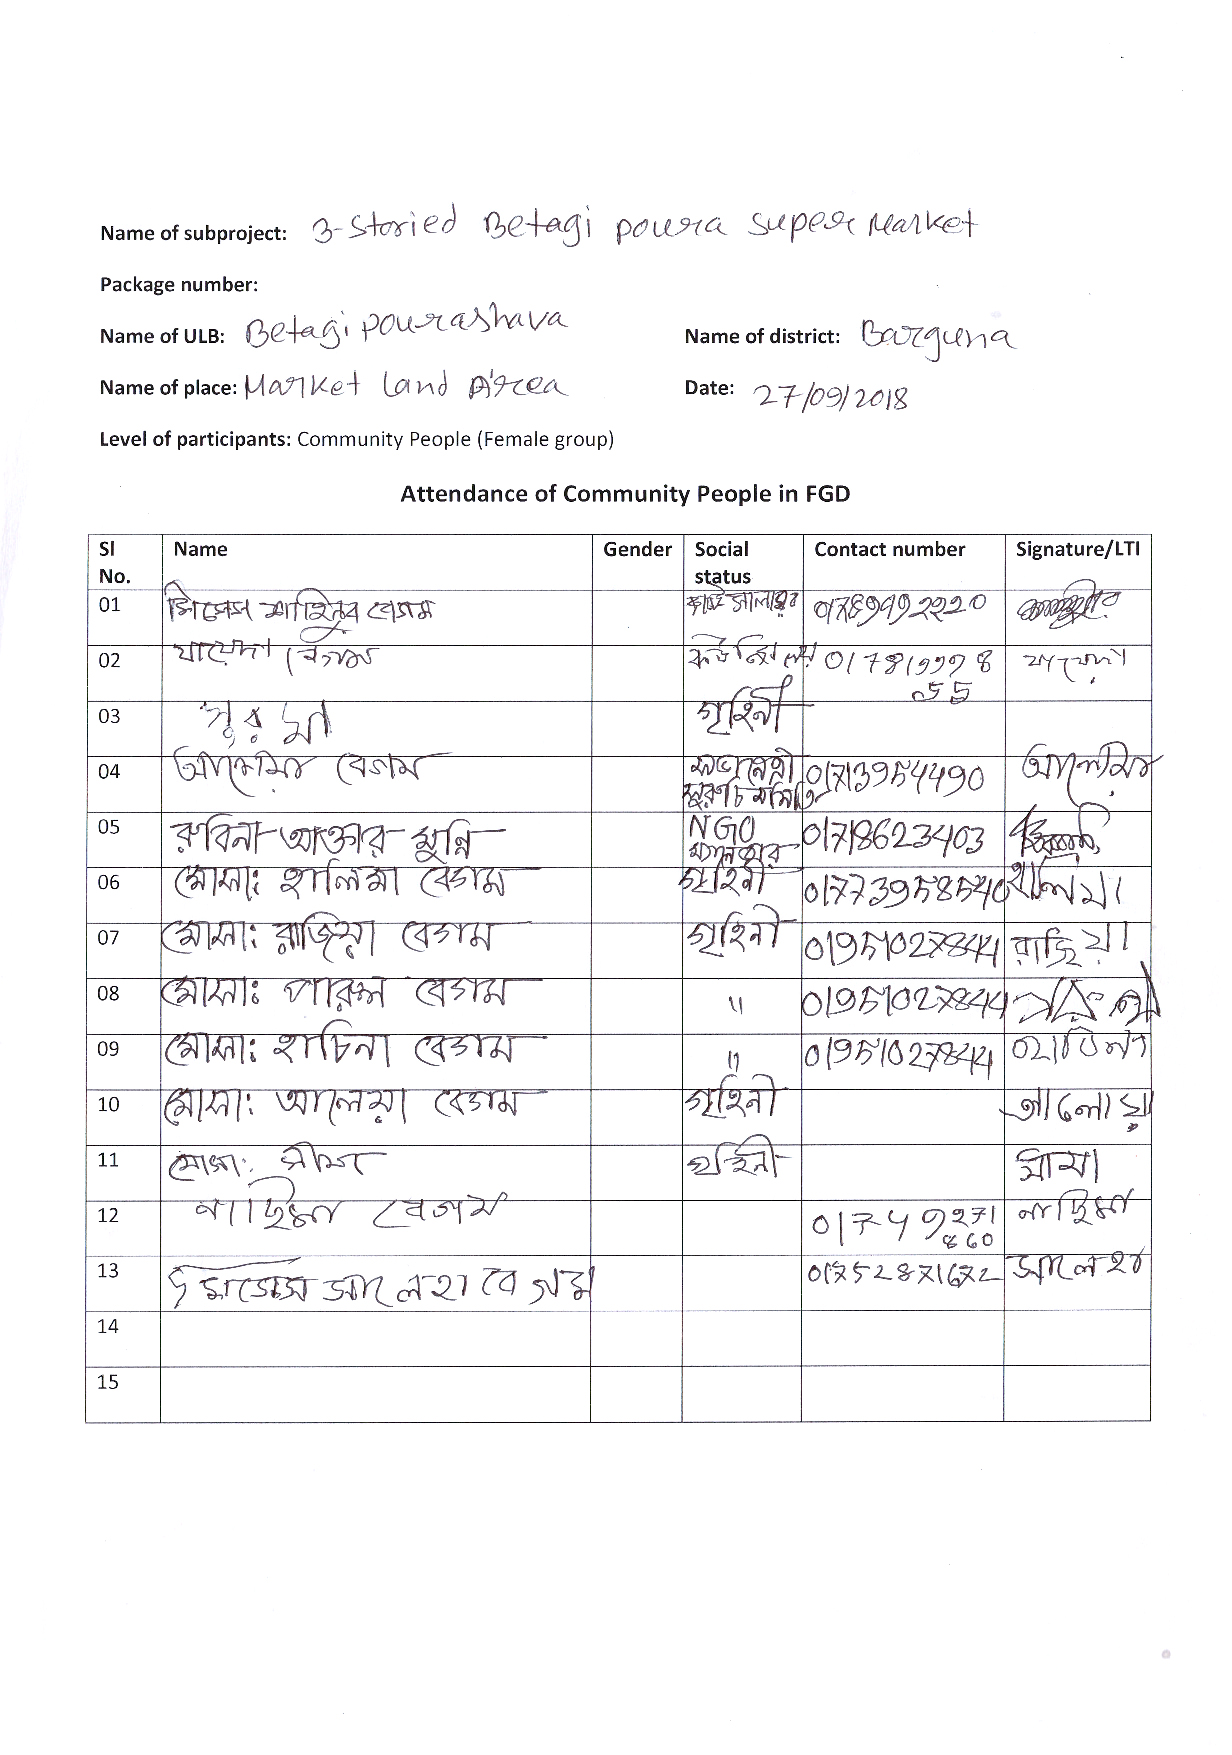 Name of subproject: 3-Storied Betagi Poura Super Market
Package number:
Name of ULB: Betagi Pourashava Name of district: Barguna
Name of place: Market Land Area Date: 27/09/2018
Level of participants: Community People (Female group)
Attendance of Community People in FGD
Sl No. Name Gender Social status Contact number Signature/LTI
01 মিসেস শাহিনুর বেগম
02 বেগম
03 গৃহিনী
04 আলেয়া বেগম 01713954490 আলেয়া
05 রুবিনা আক্তার মুন্নি NGO 01718623403
06 মোসা: হালিমা বেগম গৃহিনী 01773958540 হালিমা
07 মোসা: রাজিয়া বেগম গৃহিনী 01951027844 রাজিয়া
08 মোসা: পারুল বেগম " 01951027844
09 মোসা: হাচিনা বেগম " 01951027844
10 মোসা: আলেয়া বেগম গৃহিনী
11 মোসা: সীমা গৃহিনী সীমা
12 নাছিমা বেগম 01749271860 নাছিমা
13 সালেহা বেগম 01752871672 সালেহা
14
15